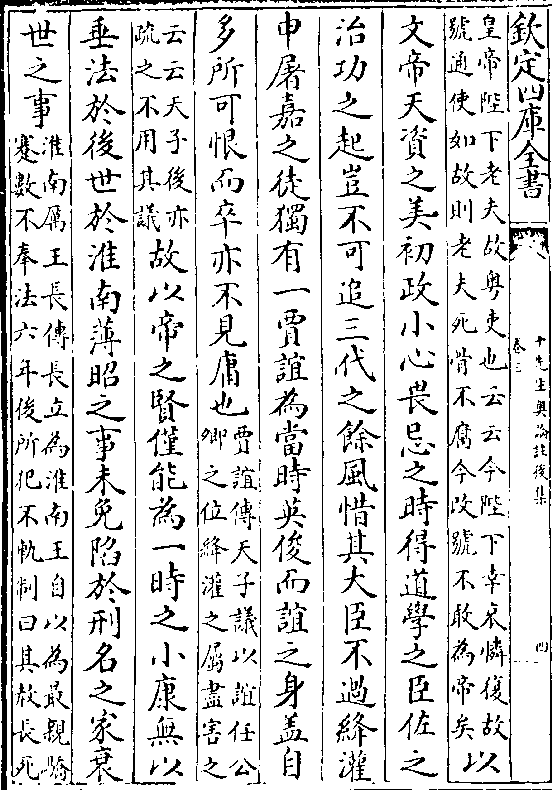 欽定四庫全書
十先生奧論註後集
卷三
四
皇帝陛下老夫故粤吏也云云今陛下幸哀憐復故
號通使如故則老夫死骨不腐今改號不敢為帝矣
以
文帝天資之美初政小心畏忌之時得道學之臣佐之
治功之起豈不可追三代之餘風惜其大臣不過絳灌
申屠嘉之徒獨有一賈誼為當時英俊而誼之身蓋自
多所可恨而卒亦不見庸也
賈誼傳天子議以誼任公
卿之位絳灌之屬盡害之
云云天子後亦
疏之不用其議
故以帝之賢僅能為一時之小康無以
垂法於後世於淮南薄昭之事未免陷於刑名之家衰
世之事
淮南厲王長傳長立為淮南王自以為最親驕
蹇數不奉法六年後所犯不軌制曰其赦長死